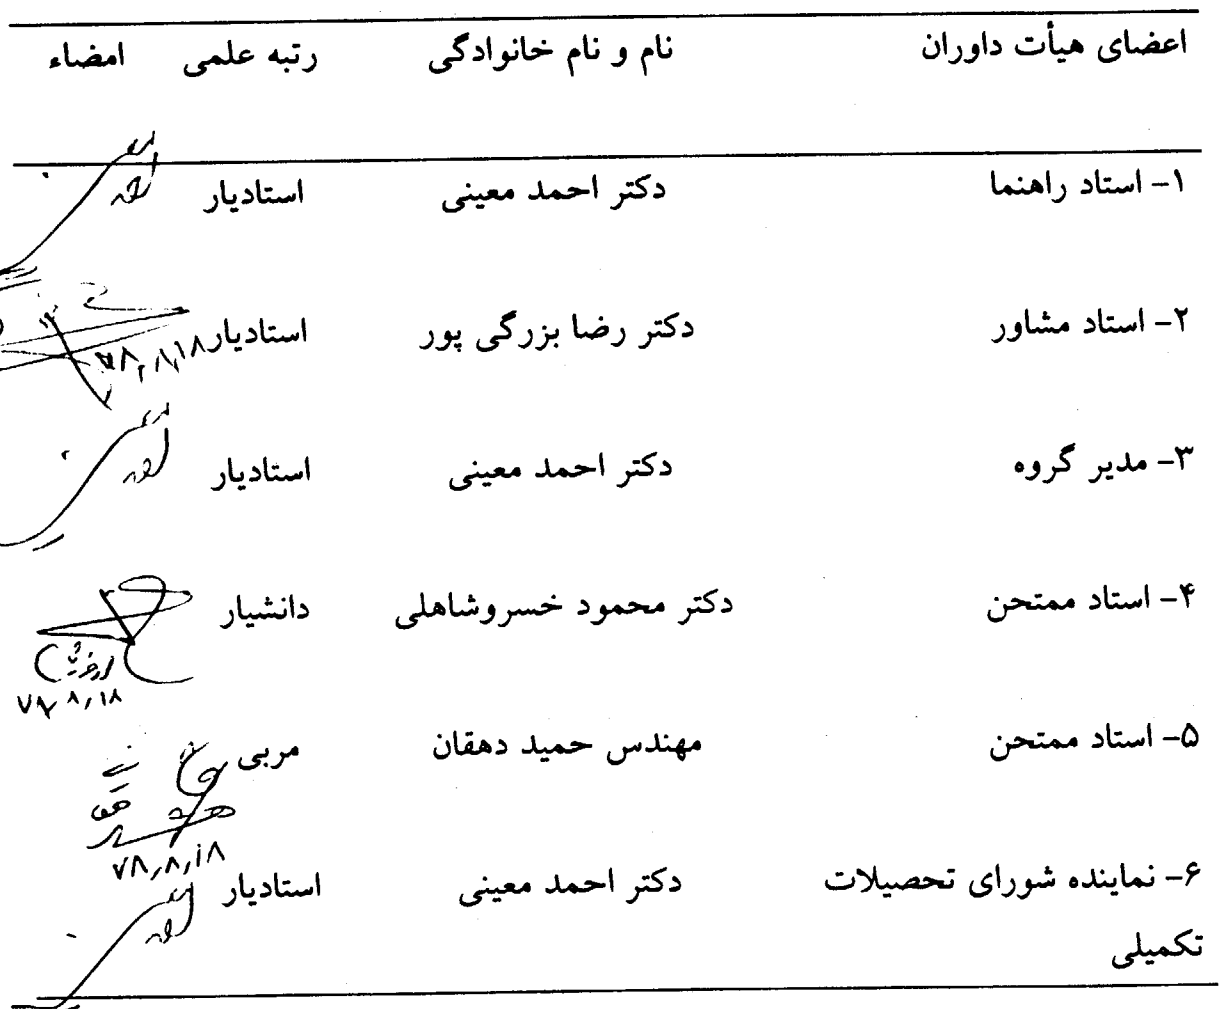 اعضای هیأت داوران نام و نام خانوادگی رتبه علمی امضاء
۱- استاد راهنما دکتر احمد معینی استادیار
۲- استاد مشاور دکتر رضا بزرگی پور استادیار ۷۸٫۸٫۱۸
۳- مدیر گروه دکتر احمد معینی استادیار
۴- استاد ممتحن دکتر محمود خسروشاهلی دانشیار
۷۸٫۸٫۱۸
۵- استاد ممتحن مهندس حمید دهقان مربی
۷۸٫۸٫۱۸
۶- نماینده شورای تحصیلات دکتر احمد معینی استادیار
تکمیلی